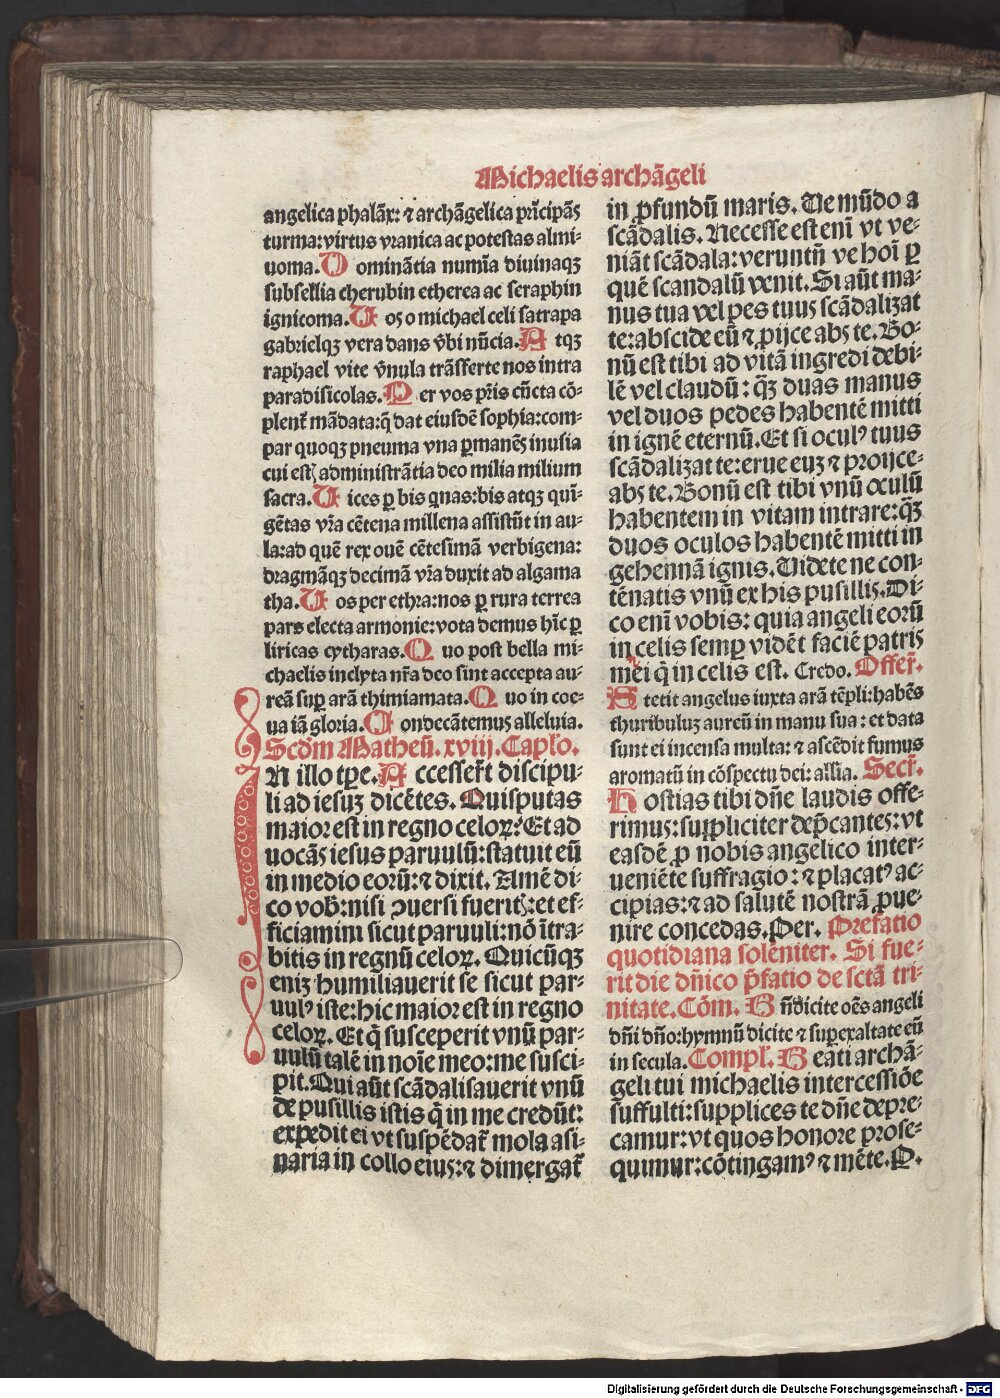 Michaelis archãgeli
angelica phalãx: ⁊ archãgelica prĩcipãs
turma: virtus vranica ac potestas almi-
uoma. D ominãtia numĩa diuinaqꝫ
subsellia cherubin etherea ac seraphin
ignicoma. U os o michael celi satrapa
gabrielqꝫ vera dans v̾bi nũcia. A tqꝫ
raphael vite v̾nula trãsferte nos intra
paradisicolas. P er vos pr̃is cũcta cõ-
plent᷑ mãdata: q̃ dat eiusdẽ sophia: com-
par quoqꝫ pneuma vna ꝑmanẽs inusia
cui estꝭ administrãtia deo milia milium
sacra. U ices ꝑ bis qnas: bis atqꝫ quĩ-
gẽtas vr̃a cẽtena millena assistũt in au-
la: ad quẽ rex ouẽ cẽtesimã verbigena:
dragmãqꝫ decimã vr̃a duxit ad algama
tha. U os per ethra: nos ꝑ rura terrea
pars electa armonie: vota demus hĩc ꝑ
liricas cytharas. Q uo post bella mi-
chaelis inclyta nr̃a deo sint accepta au-
reã suꝑ arã thimiamata. Q uo in coe-
ua iã gloria. C ondecãtemus alleluia.
Scd̃m Matheũ. xviij. Caplo.
IN illo tꝑe. A ccesser̃t discipu-
li ad iesuꝫ dicẽtes. Quis putas
maior est in regno celoꝝ? Et ad
uocãs iesus paruulũ: statuit eũ
in medio eorũ: ⁊ dixit. Amẽ di-
co vob̃: nisi ꝯuersi fueritꝭ: et ef-
ficiamini sicut paruuli: nõ ĩtra-
bitis in regnũ celoꝝ. Quicũqꝫ
enĩꝫ humiliauerit se sicut par-
uulꝰ iste: hic maior est in regno
celoꝝ. Et q̃ susceperit vnũ par-
uulũ talẽ in noĩe meo: me susci-
pit. Qui aũt scãdalisauerit vnũ
de pusillis istis q̃ in me credũt:
expedit ei vt suspẽdat᷑ mola asi-
naria in collo eiuꝰ: ⁊ dimergat᷑
in ꝓfundũ maris. Ue mũdo a
scãdalis. Necesse est enĩ vt ve-
niãt scãdala: veruntñ ve hoĩ ꝑ
quẽ scandalũ venit. Si aũt ma-
nus tua vel pes tuuꝰ scãdalizat
te: abscide eũ ⁊ ꝓijce abs te. Bo-
nũ est tibi ad vitã ingredi debi-
lẽ vel claudũ: q̃ꝫ duas manus
vel duos pedes habentẽ mitti
in ignẽ eternũ. Et si oculꝰ tuus
scãdalizat te: erue euꝫ ⁊ proijce-
abs te. Bonũ est tibi vnũ oculũ
habentem in vitam intrare: q̃ꝫ
duos oculos habentẽ mitti in
gehennã ignis. Uidete ne con-
tẽnatis vnũ ex his pusillis. Di-
co enĩ vobis: quia angeli eorũ
in celis semꝑ vidẽt faciẽ patris
mei q̃ in celis est. Credo. Offer̃.
S tetit angelus iuxta arã tẽpli: habẽs
thuribuluꝫ aureũ in manu sua: et data
sunt ei incensa multa: ⁊ ascẽdit fumus
aromatũ in cõspectu dei: allĩa. Secr̃.
H ostias tibi dñe laudis offe-
rimus: suppliciter dep̃cantes: vt
easdẽ ꝓ nobis angelico inter-
ueniẽte suffragio: ⁊ placatꝰ ac-
cipias: ⁊ ad salutẽ nostrã ꝓue-
nire concedas. Per. Prefatio
quotidiana solẽniter. Si fue-
rit die dñico p̃fatio de sctã tri-
nitate. Cõm. B ñdicite oẽs angeli
dñi dño: hymnũ dicite ⁊ suꝑexaltate eũ
in secula. Compl̃. B eati archã-
geli tui michaelis intercessiõe
suffulti: supplices te dñe depre-
camur: vt quos honore prose-
quimur: cõtingamꝰ ⁊ mẽte. P.
Digitalisierung gefördert durch die Deutsche Forschungsgemeinschaft - DFG